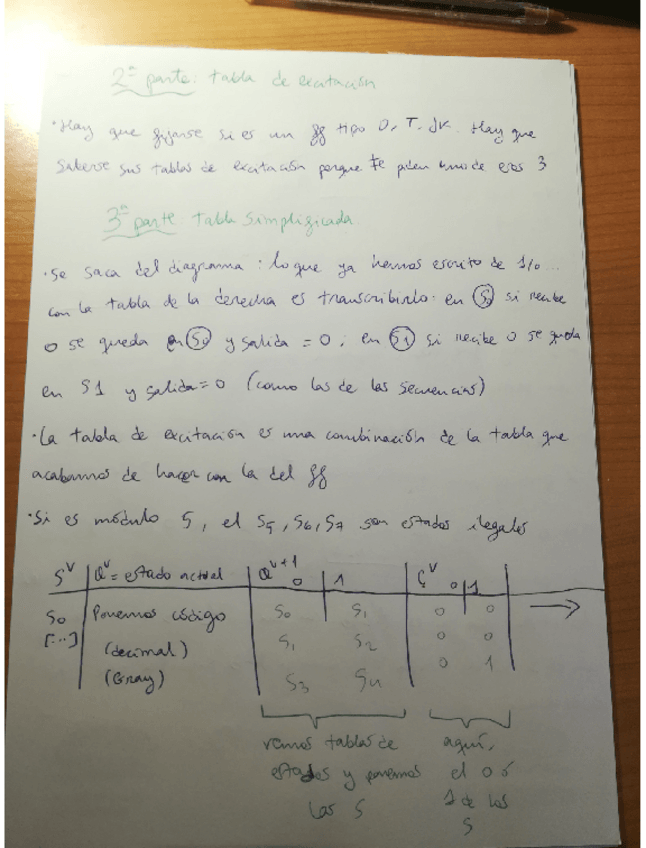 2ª parte: tabla de excitación
· Hay que fijarse si es un ff tipo D, T, JK. Hay que
saberse sus tablas de excitación porque te piden uno de esos 3
3ª parte tabla simplificada
· Se saca del diagrama: lo que ya hemos escrito de 1/0...
con la tabla de la derecha es transcribirlo. en S0 si recibe
0 se queda en S0 y salida = 0; en S1 si recibe 0 se queda
en S1 y salida=0 (como las de las secuencias)
· La tabla de excitación es una combinación de la tabla que
acabamos de hacer con la del ff
· Si es módulo 5, el S5, S6, S7 son estados ilegales
S^v Q^v = estado actual Q^v+1 0 1 0 1
S0 Ponemos código S0 S1 0 0 →
[...] (decimal) S1 S2 0 0
(Gray) S3 S4 0 1
vemos tablas de aquí,
estados y ponemos el 0 ó
las S 1 de las
S